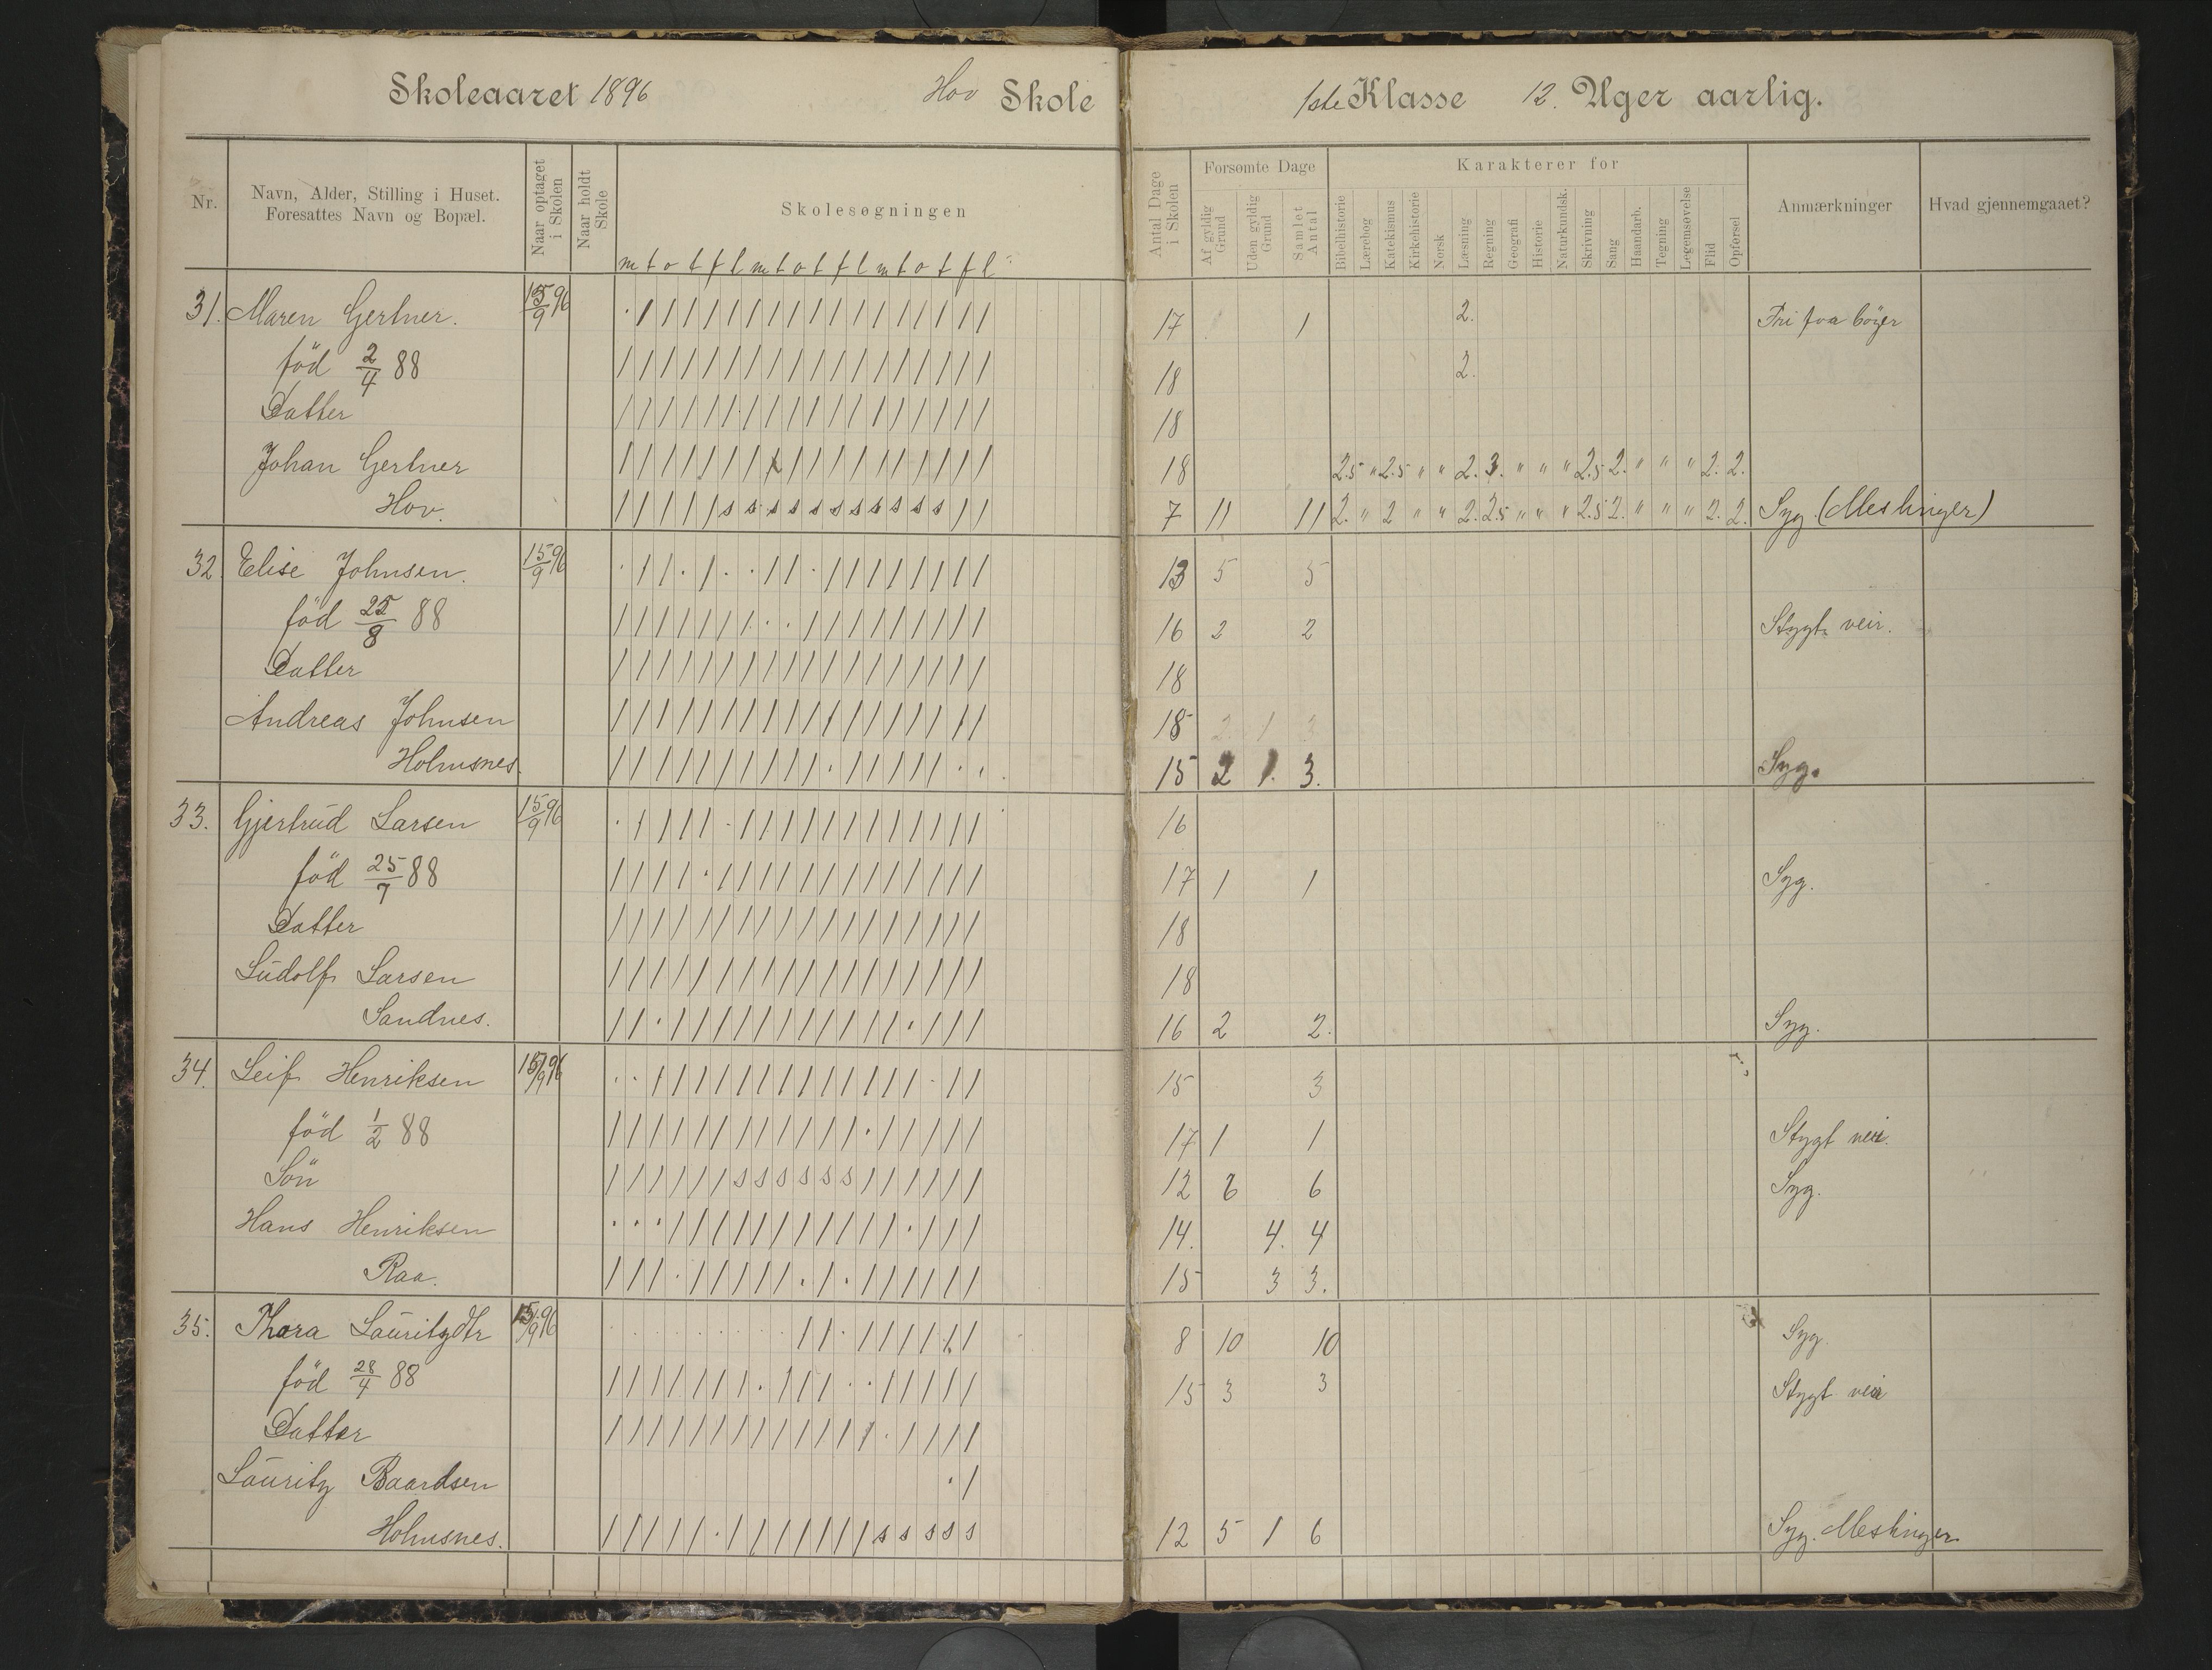 Skoleaaret 1896 Hov Skole 1ste Klasse 12. Uger aarlig.
Nr. Navn, Alder, Stilling i Huset. Foresattes Navn og Bopæl. Naar optaget i Skolen Naar holdt Skole Skolesøgningen Antal Dage i Skolen Forsømte Dage Af gyldig Grund Uden gyldig Grund Samlet Antal Karakterer for Bibelhistorie Lærebog Katekismus Kirkehistorie Norsk Læsning Regning Geografi Historie Naturkundsk. Skrivning Sang Haandarb. Tegning Legemsøvelse Flid Opførsel Anmærkninger Hvad gjennemgaaet?
m t o t f l m t o t f l m t o t f l
31. Maren Gertner. 15/9 96 · / / / / / / / / / / / / / / / / / 17 1 2.
född 2/4 88 / / / / / / / / / / / / / / / / / / 18 2.
Datter / / / / / / / / / / / / / / / / / / 18
Johan Gertner / / / / / / / / / / / / / / / / / / 18 2.5 " 2.5 " " 2. 3. " " " 2.5 2. " " " 2. 2.
Hov. / / / / / s s s s s s s s s s s / / 7 11 11 2. " 2 " " 2. 2.5 " " " 2.5 2. " " " 2. 2. Syg. (Meslinger)
32. Elise Johnsen. 15/9 96 · / / · / · · / / · / / / / / / / / 13 5 5
föd 25/8 88 / / / / / / / · · / / / / / / / / / 16 2 2 Stygt veir.
Datter / / / / / / / / / / / / / / / / / / 18
Andreas Johnsen / / / / / / / / / / / / / / / / / / 18 2 1 3
Holmsnes. / / / / / / / / / / · / / / / / · · 15 2 1. 3. Syg.
33. Gjertrud Larsen 15/9 96 · / / / / · / / / / / / / / / / / / 16
föd 25/7 88 / / / / · / / / / / / / / / / / / / 17 1 1 Syg.
Datter / / / / / / / / / / / / / / / / / / 18
Ludolf Larsen / / / / / / / / / / / / / / / / / / 18
Sandnes. / / · / / / / / / / / / / / · / / / 16 2 2. Syg.
34. Leif Henriksen 15/9 96 · · / / / / / / / / / / / / / · / / 15 3
föd 1/2 88 / / / / / / / / / / / / · / / / / / 17 1 1 Stygt veir.
Sön / / / / / / s s s s s s / / / / / / 12 6 6 Syg.
Hans Henriksen · · · / / / / / / / / / / / · / / / 14. 4. 4
Raa. / / / · / / / / / · / · / / / / / / 15 3 3.
35. Thora Lauritzdtr 15/9 96 · · · · · · · · · / / · / / / / / / 8 10 10 Syg.
föd 28/4 88 / / / / / / / · / / / · · / / / / / 15 3 3 Stygt veir
Datter / / / / / / / / / / / / / · / / / /
Lauritz Baardsen · /
Holmsnes. / / / / / · / / / / / / / s s s s s 12 5 1 6 Syg. Meslinger